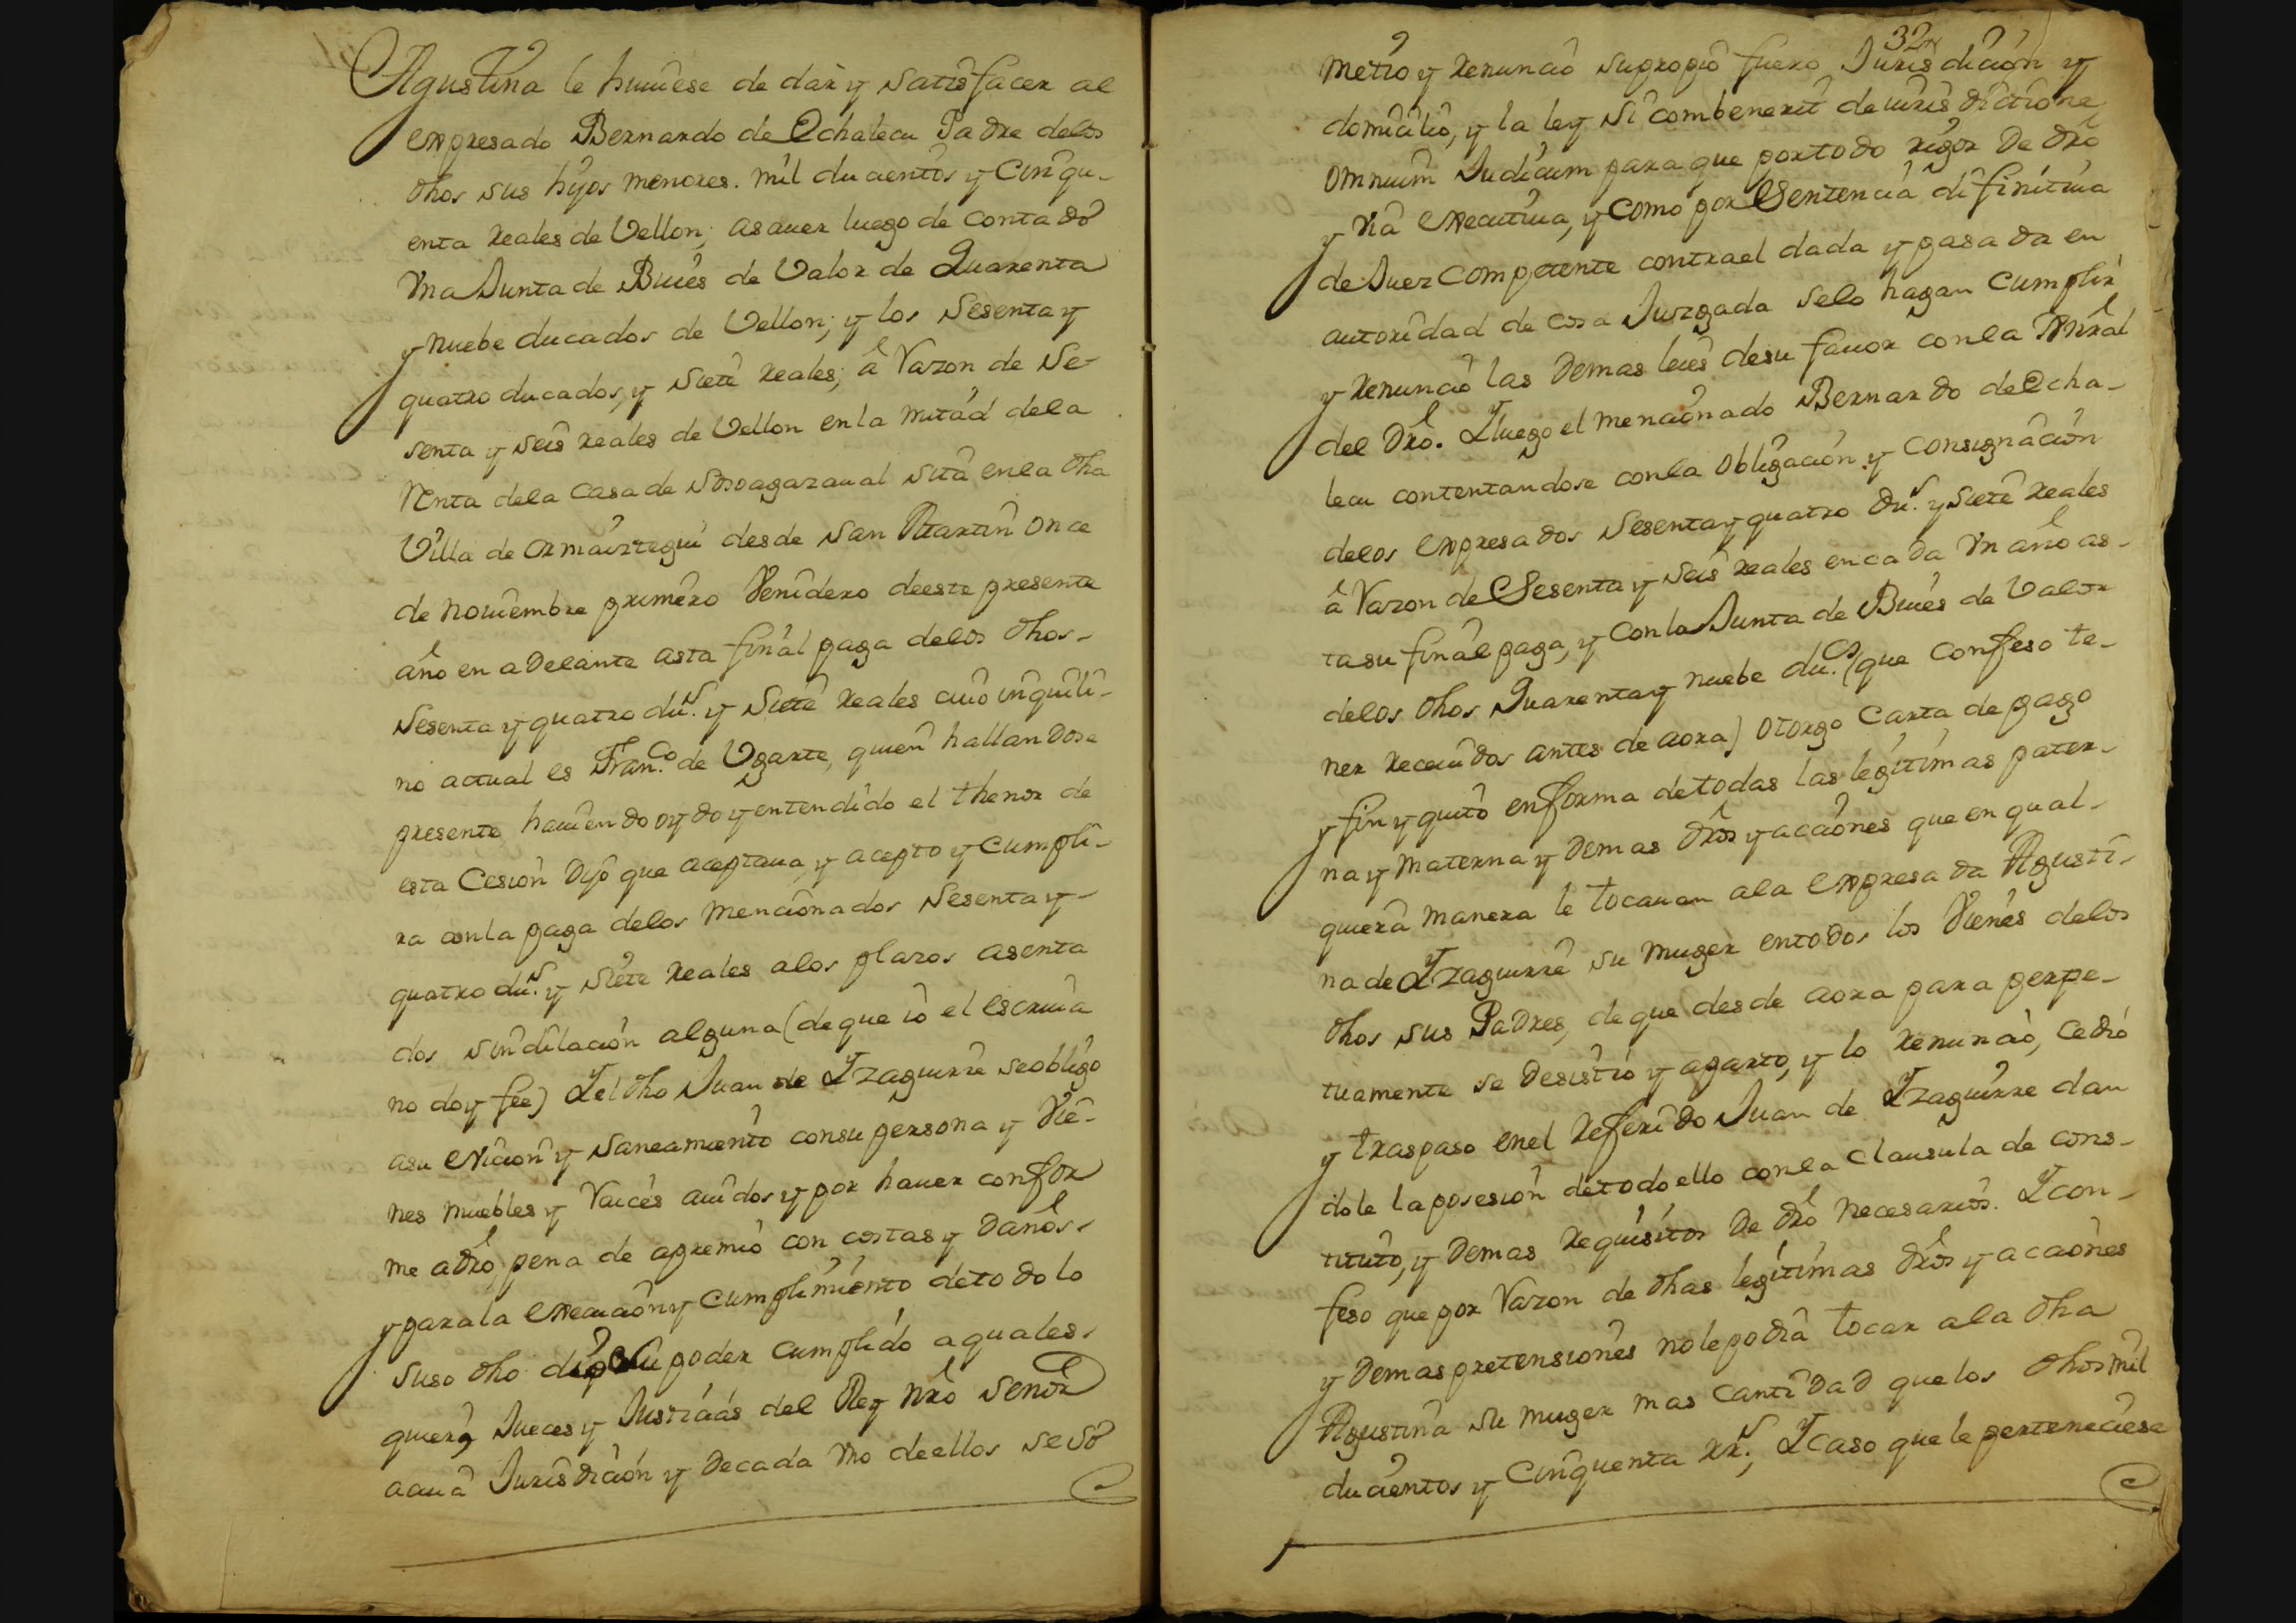 Agustina le huuiese de dar y satisfacer al
expresado Bernardo de Echalecu Padre delos
dhos sus hijos menores. mil ducientos y Cinqu-
enta reales de Vellon; asauer luego de contado
Vna Junta de Bueies de Valor de Quarenta
y nuebe ducados de Vellon; y los Sesenta y
quatro ducados, y siete reales; â Razon de Se-
senta y seis reales de Vellon en la mitad dela
Renta dela Casa de sita enla dha
Villa de Ormaiztegui desde San Martin once
de nouiembre primero Venidero deeste presente
año en adelante asta final paga delos dhos-
Sesenta y quatro dus. y siete reales cuio inquili-
no actual es Franco. de Ugarte, quien hallandose
presente hauiendo oydo y entendido el thenor de
esta Cesion Dijo que aceptaua, y acepto y cumpli-
ra con la paga delos mencionados Sesenta y-
quatro dus. y siete reales alos plazos asenta
dos sin dilacion alguna (de que io el escriua
no doy fee) Y el dho Juan de Yzaguirre se obligo
asu eVicion y Saneamiento consu persona y Vie-
nes muebles y Raices auidos y por hauer confor
me adro, pena de apremio con costas y daños-
y parala execucion y cumplimiento detodo lo
suso dho dio su poder cumplido a quales-
quiera Jueces y Justicias del Rey nro Señor
acuia Jurisdicion y decada vno deellos se so
32
metio y renuncio supropio fuero Jurisdicion y
domicilio, y la ley si combenerit de iuris dictione
omnium Judicum para que portodo rigor de dro
y via executiua, y como por Sentencia difinitiua
de Juez competente contra el dada y pasada en
autoridad de cosa Juzgada selo hagan cumplir
y renuncio las demas leies desu fauor conla general
del dro. Y luego el mencionado Bernardo de Echa-
lecu contentandose conla obligacion y consignacion
delos expresados Sesenta y quatro dus. y siete reales
â Razon de Sesenta y seis reales encada vn año as-
tasu final paga, y con la Junta de Bueies de Valor
delos dhos Quarenta y nuebe ducs. (que confeso te-
ner receuidos antes de aora) otorgo Carta de pago
y fin y quito enforma detodas las legitimas pater-
na y materna y demas dros y acciones que en qual-
quiera manera le tocauan ala expresada Agusti-
na de Yzaguirre su muger entodos los Vienes delos
dhos sus Padres, de que desde aora para perpe-
tuamente se desistio y aparto, y lo renuncio, cedio
y traspaso enel referido Juan de Yzaguirre dan
dole la posesion detodo ello conla clausula de cons-
tituto, y demas requisitos de dro necesarios. Y con-
feso que por Razon de dhas legitimas dros y acciones
y demas pretensiones nole podia tocar ala dha
Agustina su muger mas cantidad que los dhos mil
ducientos y Cinquenta rrs.; Y caso que le perteneciese